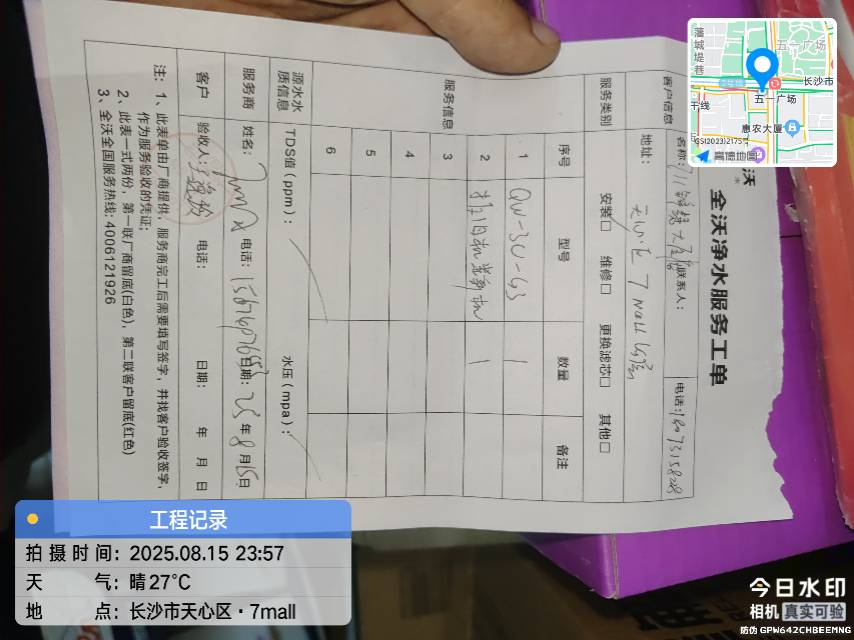 沃
全沃净水服务工单
客户信息
名称:
联系人:
电话:
地址: 天心区7mall
服务类别
安装□ 维修□ 更换滤芯□ 其他□
服务信息
序号 型号 数量 备注
1 QW-3U-G3 1
2 1
3
4
5
6
源水水质信息
TDS值(ppm):
水压(mpa):
服务商
姓名:
电话:
日期: 25年8月15日
客户
验收人:
电话:
日期: 年 月 日
注: 1、此表单由厂商提供,服务商完工后需要填写签字,并找客户验收签字,
作为服务验收的凭证;
2、此表一式两份,第一联厂商留底(白色),第二联客户留底(红色)
3、全沃全国服务热线: 4006121926
五一广场
长沙市
五一广场
惠农大厦
蒲城堤巷
干线
GS(2023)2175号
高德地图
工程记录
拍摄时间: 2025.08.15 23:57
天 气: 晴27°C
地 点: 长沙市天心区·7mall
今日水印
相机 真实可验
防伪 GPW642CHBEEMNG